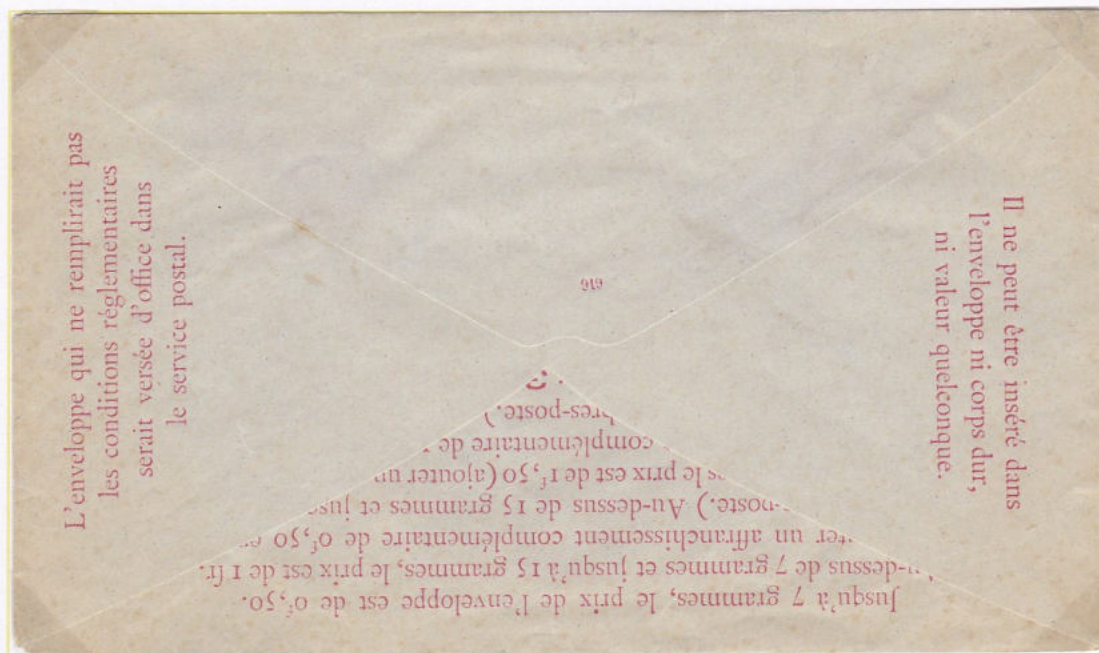 L'enveloppe qui ne remplirait pas
les conditions réglementaires
serait versée d'office dans
le service postal.
Il ne peut être inséré dans
l'enveloppe ni corps dur,
ni valeur quelconque.
Jusqu'à 7 grammes, le prix de l'enveloppe est de 0ᶠ,50.
u-dessus de 7 grammes et jusqu'à 15 grammes, le prix est de 1 fr.
ter un affranchissement complémentaire de 0ᶠ,50
-poste.) Au-dessus de 15 grammes et jus
es le prix est de 1ᶠ,50 (ajouter un
complémentaire de
bres-poste.)